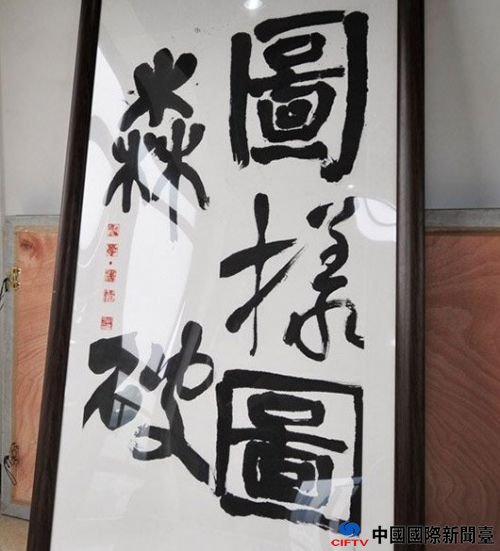 圖樣圖
森破
CIFTV 中國國際新聞臺